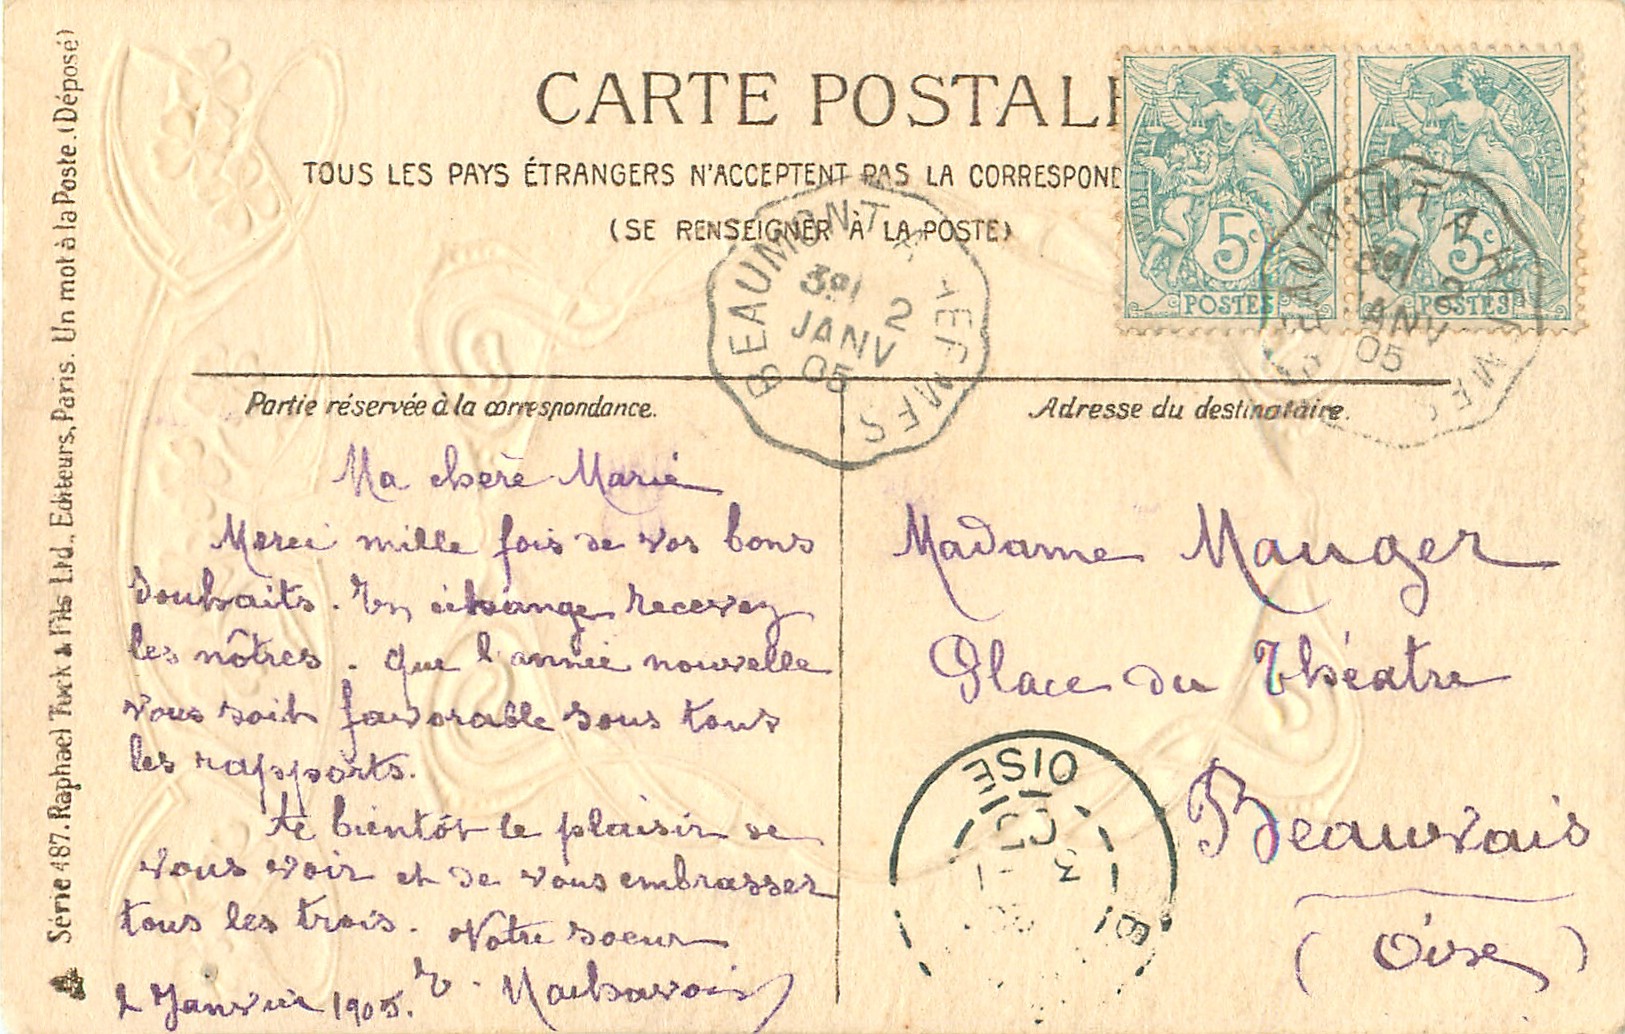 CARTE POSTALE
TOUS LES PAYS ÉTRANGERS N'ACCEPTENT PAS LA CORRESPOND
(SE RENSEIGNER À LA POSTE)
5c
POSTES
5c
POSTES
BEAUMONT A HERMES
2
JANV
05
BEAUMONT A HERMES
JANV
05
Partie réservée à la correspondance.
Adresse du destinataire.
Ma chère Marie
Merci mille fois de vos bons
souhaits. En échange recevez
les nôtres. Que l'année nouvelle
vous soit favorable sous tous
les rapports.
A bientôt le plaisir de
vous voir et de vous embrasser
tous les trois. Votre soeur
2 Janvier 1905.
Madame Mauger
Place du Théatre
Beauvais
(Oise)
OISE
05
3
Série 487. Raphael Tuck & Fils Ltd., Editeurs, Paris. Un mot à la Poste. (Déposé)